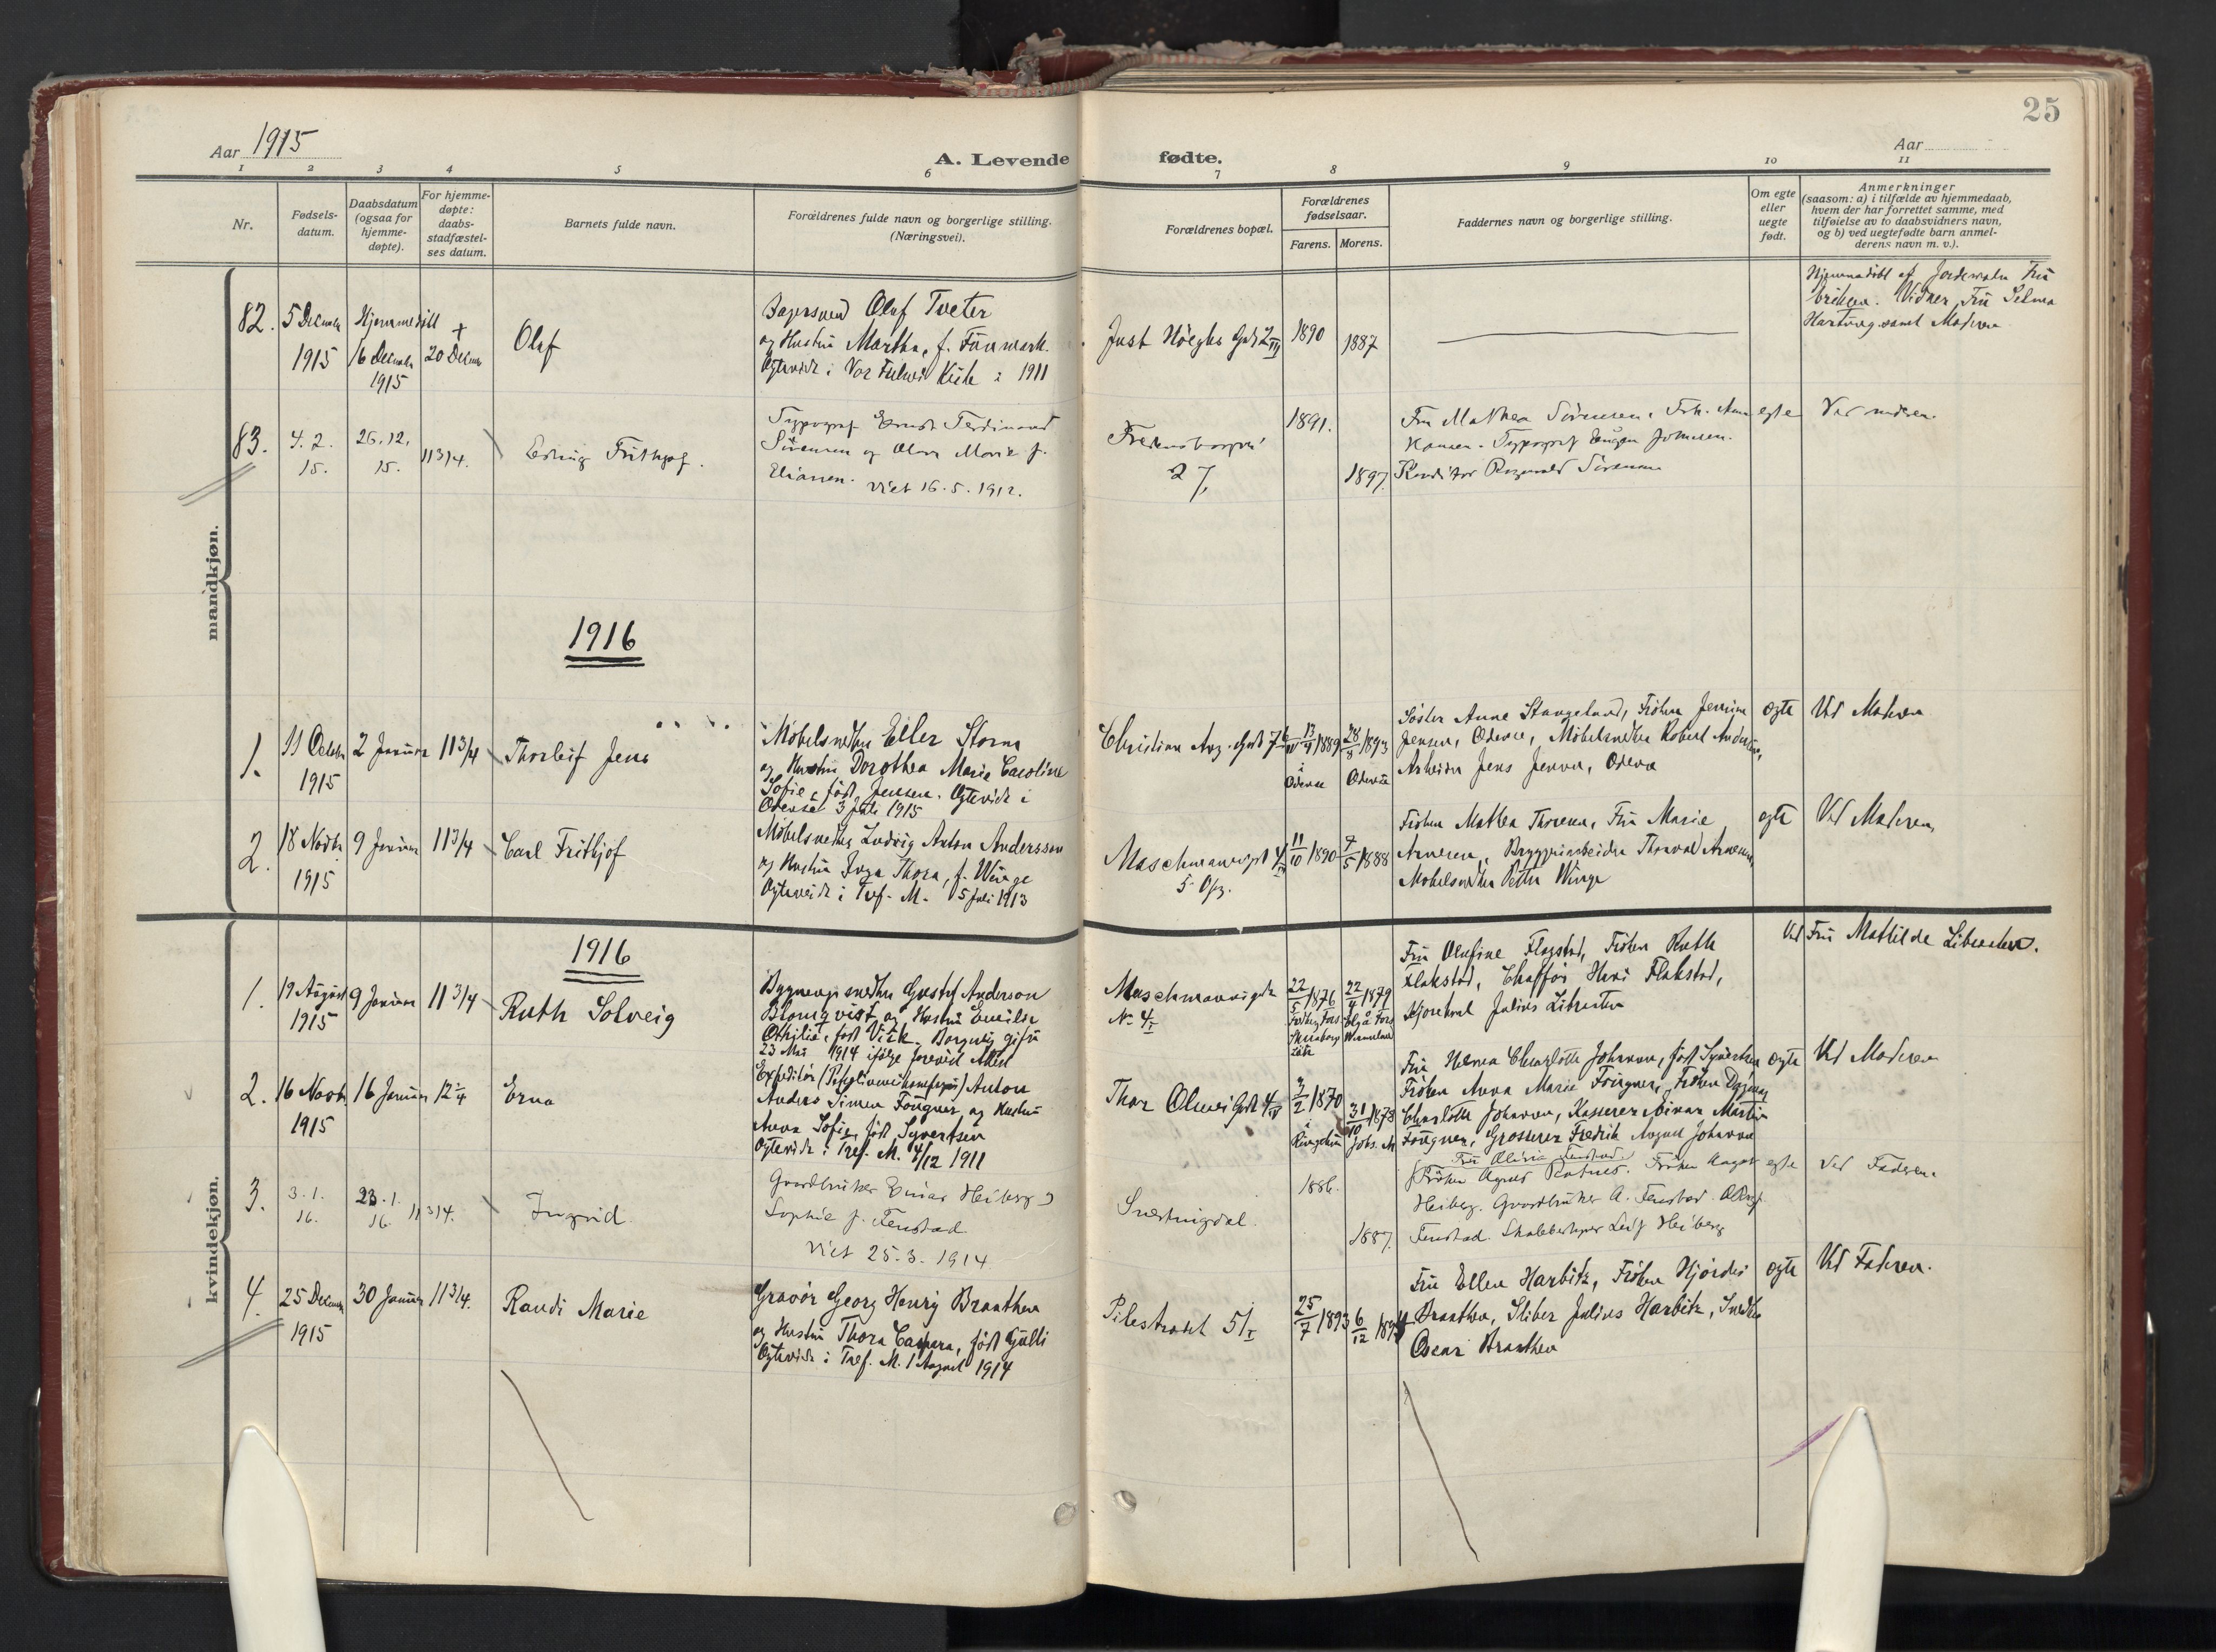 25
Aar 1915
A. Levende fødte.
Aar
1 2 3 4 5 6 7 8 9 10 11
Nr.
Fødsels-
datum.
Daabsdatum
(ogsaa for
hjemme-
døpte).
For hjemme-
døpte:
daabs-
stadfæstel-
ses datum.
Barnets fulde navn.
Forældrenes fulde navn og borgerlige stilling.
(Næringsvei).
Forældrenes bopæl.
Forældrenes
fødselsaar.
Farens. Morens.
Faddernes navn og borgerlige stilling.
Om egte
eller
uegte
født.
Anmerkninger
(saasom: a) i tilfælde av hjemmedaab,
hvem der har forrettet samme, med
tilføielse av to daabsvidners navn,
og b) ved uegtefødte barn anmel-
derens navn m. v.).
mandkjøn.
82.
5 Decembr
1915
Hjemmedøbt
16 Decembr
1915
+
20 Decmbr
Olaf
Bagersvend Olaf Tveter
og Hustru Martha, f.
Egteviede i Vor Frelsers Kirke i 1911
Just Høeghs Gade 2 III
1890
1887
Hjemmedøbt af Jordemoder Fru
Eriksen. Vidner, Fru Selma
Hartvig samt Moderen
83.
4. 2.
15.
26. 12.
15.
11 3/4.
Frithjof.
Typograf Ernst Ferdinand
Sørensen og Olava Marie f.
Eliassen. viet 16. 5. 1912.
Fredensborgvei
27,
1891.
1897.
Fru Mathea Sørensen, Frk. Anna
Hansen. Typograf Eugen Johnsen.
Konditor Ragnvald Sørensen
egte
Ved moderen.
1916
1.
11 Octobr
1915
2 Januar
11 3/4
Thorleif Jens
Møbelsnedker Eller Storm
og Hustru Dorothea Marie Caroline
Sofie, født Jensen. Egteviede i
Odense 3 Juli 1915
Christian Aug. Gade
13/9 1889
i
Odense
28/8 1893
Odense
Søster Anne Stangeland, Frøken Jensine
Jensen, Odense, Møbelsnedker Robert Andersen,
Arbeider Jens Jensen, Odense
egte
Ved Moderen
2.
18 Novbr
1915
9 Januar
11 3/4
Carl Frithjof
Møbelsnedker Ludvig Anton Andersson
og Hustru Inga Thora, f. Winge
Egteviede i Tref. M. 5 Juli 1913
Maschmannsgd 4
5 Opg.
11/10 1890
7/5 1888
Frøken Mathea Thoresen, Fru Marie
Arnesen, Bryggeriarbeider Thorvald Arnesen,
Møbelsnedker Petter Winge
egte
Ved Moderen,
kvindekjøn.
1916
1.
19 August
1915
9 Januar
11 3/4
Ruth Solveig
Bygningssnedker Gustaf Anderson
Blomqvist og Hustru Emilie
Othilie, født Vik. Borgerlig gifte
23 Mai 1914 ifølge forevist Attest
Maschmannsgade
No 4 I
22/5 1876
22/4 1879
Fru Olufine Flagstad, Frøken Ruth
Flakstad, Chaffør Hans Flakstad,
Julius Libenten
Ved Fru Mathilde Libenten.
2.
16 Novbr.
1915
16 Januar
12 1/4
Erna
Expeditør Anton
Anders Simen Fougner og Hustru
Anna Sofie, født Syvertsen
Egteviede i Tref. M. 4/12 1911
Thor Olsens Gade 4 IV
3/2 1870
i
31/10 1878
Johs. M
Fru Helma Charlotte Johnson, født Syvertsen
Frøken Anna Marie Fougner, Frøken Dagny
Charlotte Johnson, Kasserer Einar Martin
Fougner, Grosserer Fredrik August Johnson
egte
Ved Moderen
3.
3. 1.
16.
23. 1.
16.
11 3/4.
Ingrid.
Gaardbruker Einar Heiberg og
Sophie f. Fenstad.
viet 25. 3. 1914
1886.
1887.
Frøken Agnes Frøken Aagot
Heiberg. Gaardbruker A. Fenstad.
Fenstad. Leif Heiberg
egte
Ved Faderen.
4.
25 Decmbr
1915
30 Januar
11 3/4.
Randi Marie
Gravør Georg Henry Braathen
og Hustru Thora Caspara, født Gulli
Egteviede i Tref. M. 1 August 1914
Pilestrædet 51 I
25/7 1893
6/12 1894
Fru Ellen Harbitz, Frøken Hjørdis
Braathen, Sliber Julius Harbitz, Snedker
Oscar Braathen
egte
Ved Faderen.